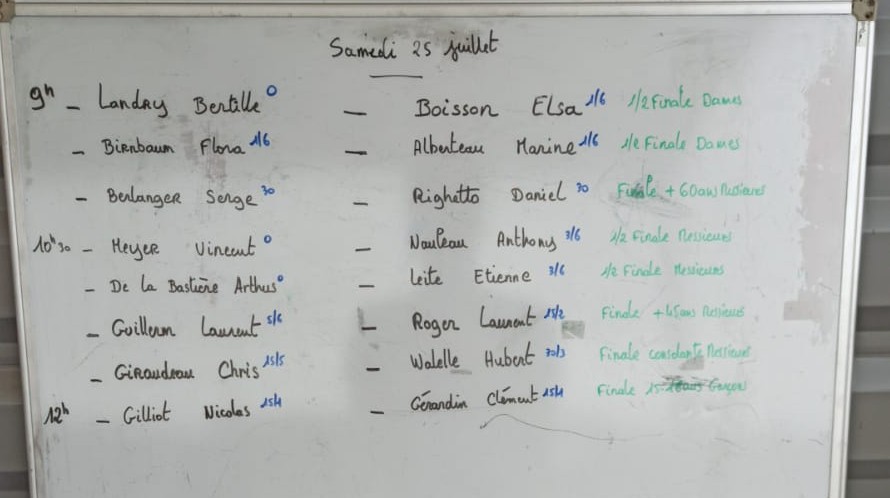 Samedi 25 juillet
9h - Landry Bertille 0 - Boisson Elsa 1/6 1/2 Finale Dames
- Birnbaum Flora 1/6 - Alberteau Marine 1/6 1/2 Finale Dames
- Berlanger Serge 30 - Righetto Daniel 30 Finale + 60ans Messieurs
10h30 - Meyer Vincent 0 - Nauleau Anthony 3/6 1/2 Finale Messieurs
- De la Bastière Arthus 0 - Leite Etienne 3/6 1/2 Finale Messieurs
- Guillerm Laurent 5/6 - Roger Laurent 15/2 Finale +45ans Messieurs
- Giraudeau Chris 15/5 - Walelle Hubert 30/3 Finale consolante Messieurs
12h - Gilliot Nicolas 15/4 - Gérardin Clément 15/4 Finale 15- Garçons